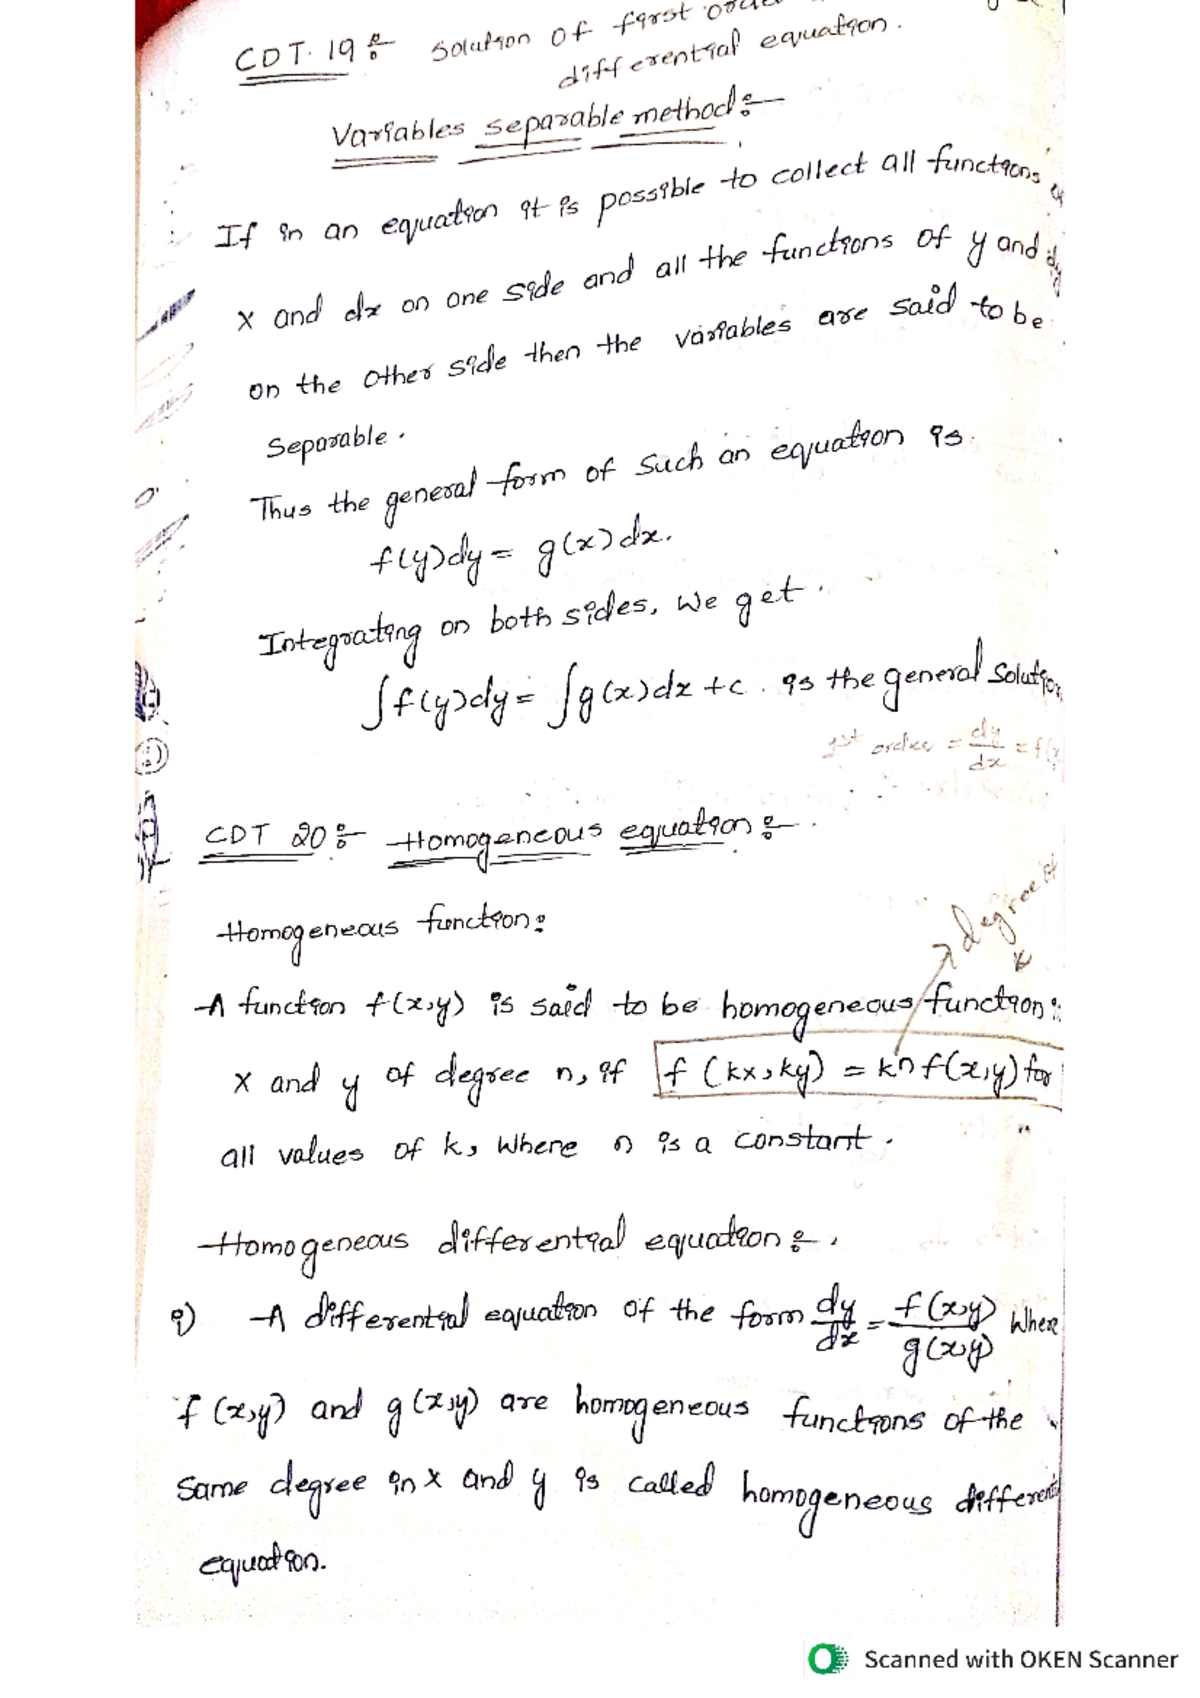 CDT. 19:- Solution of first
differential equation.
Variables separable method:-
If in an equation it is possible to collect all functions
x and dx on one side and all the functions of y and dy
on the other side then the variables are said to be
Separable.
Thus the general form of such an equation is.
f(y)dy = g(x)dx.
Integrating on both sides, we get.
∫f(y)dy = ∫g(x)dx + c. is the general solution
1st order = dy/dx = f(x
CDT 20:- Homogeneous equation:-
Homogeneous function:
degree of
k
A function f(x,y) is said to be homogeneous function
x and y of degree n, if f(kx,ky) = kⁿ f(x,y) for
all values of k, where n is a constant.
Homogeneous differential equation:-
i) A differential equation of the form dy/dx = f(x,y)/g(x,y) Where
f(x,y) and g(x,y) are homogeneous functions of the
Same degree in x and y is called homogeneous different
equation.
Scanned with OKEN Scanner